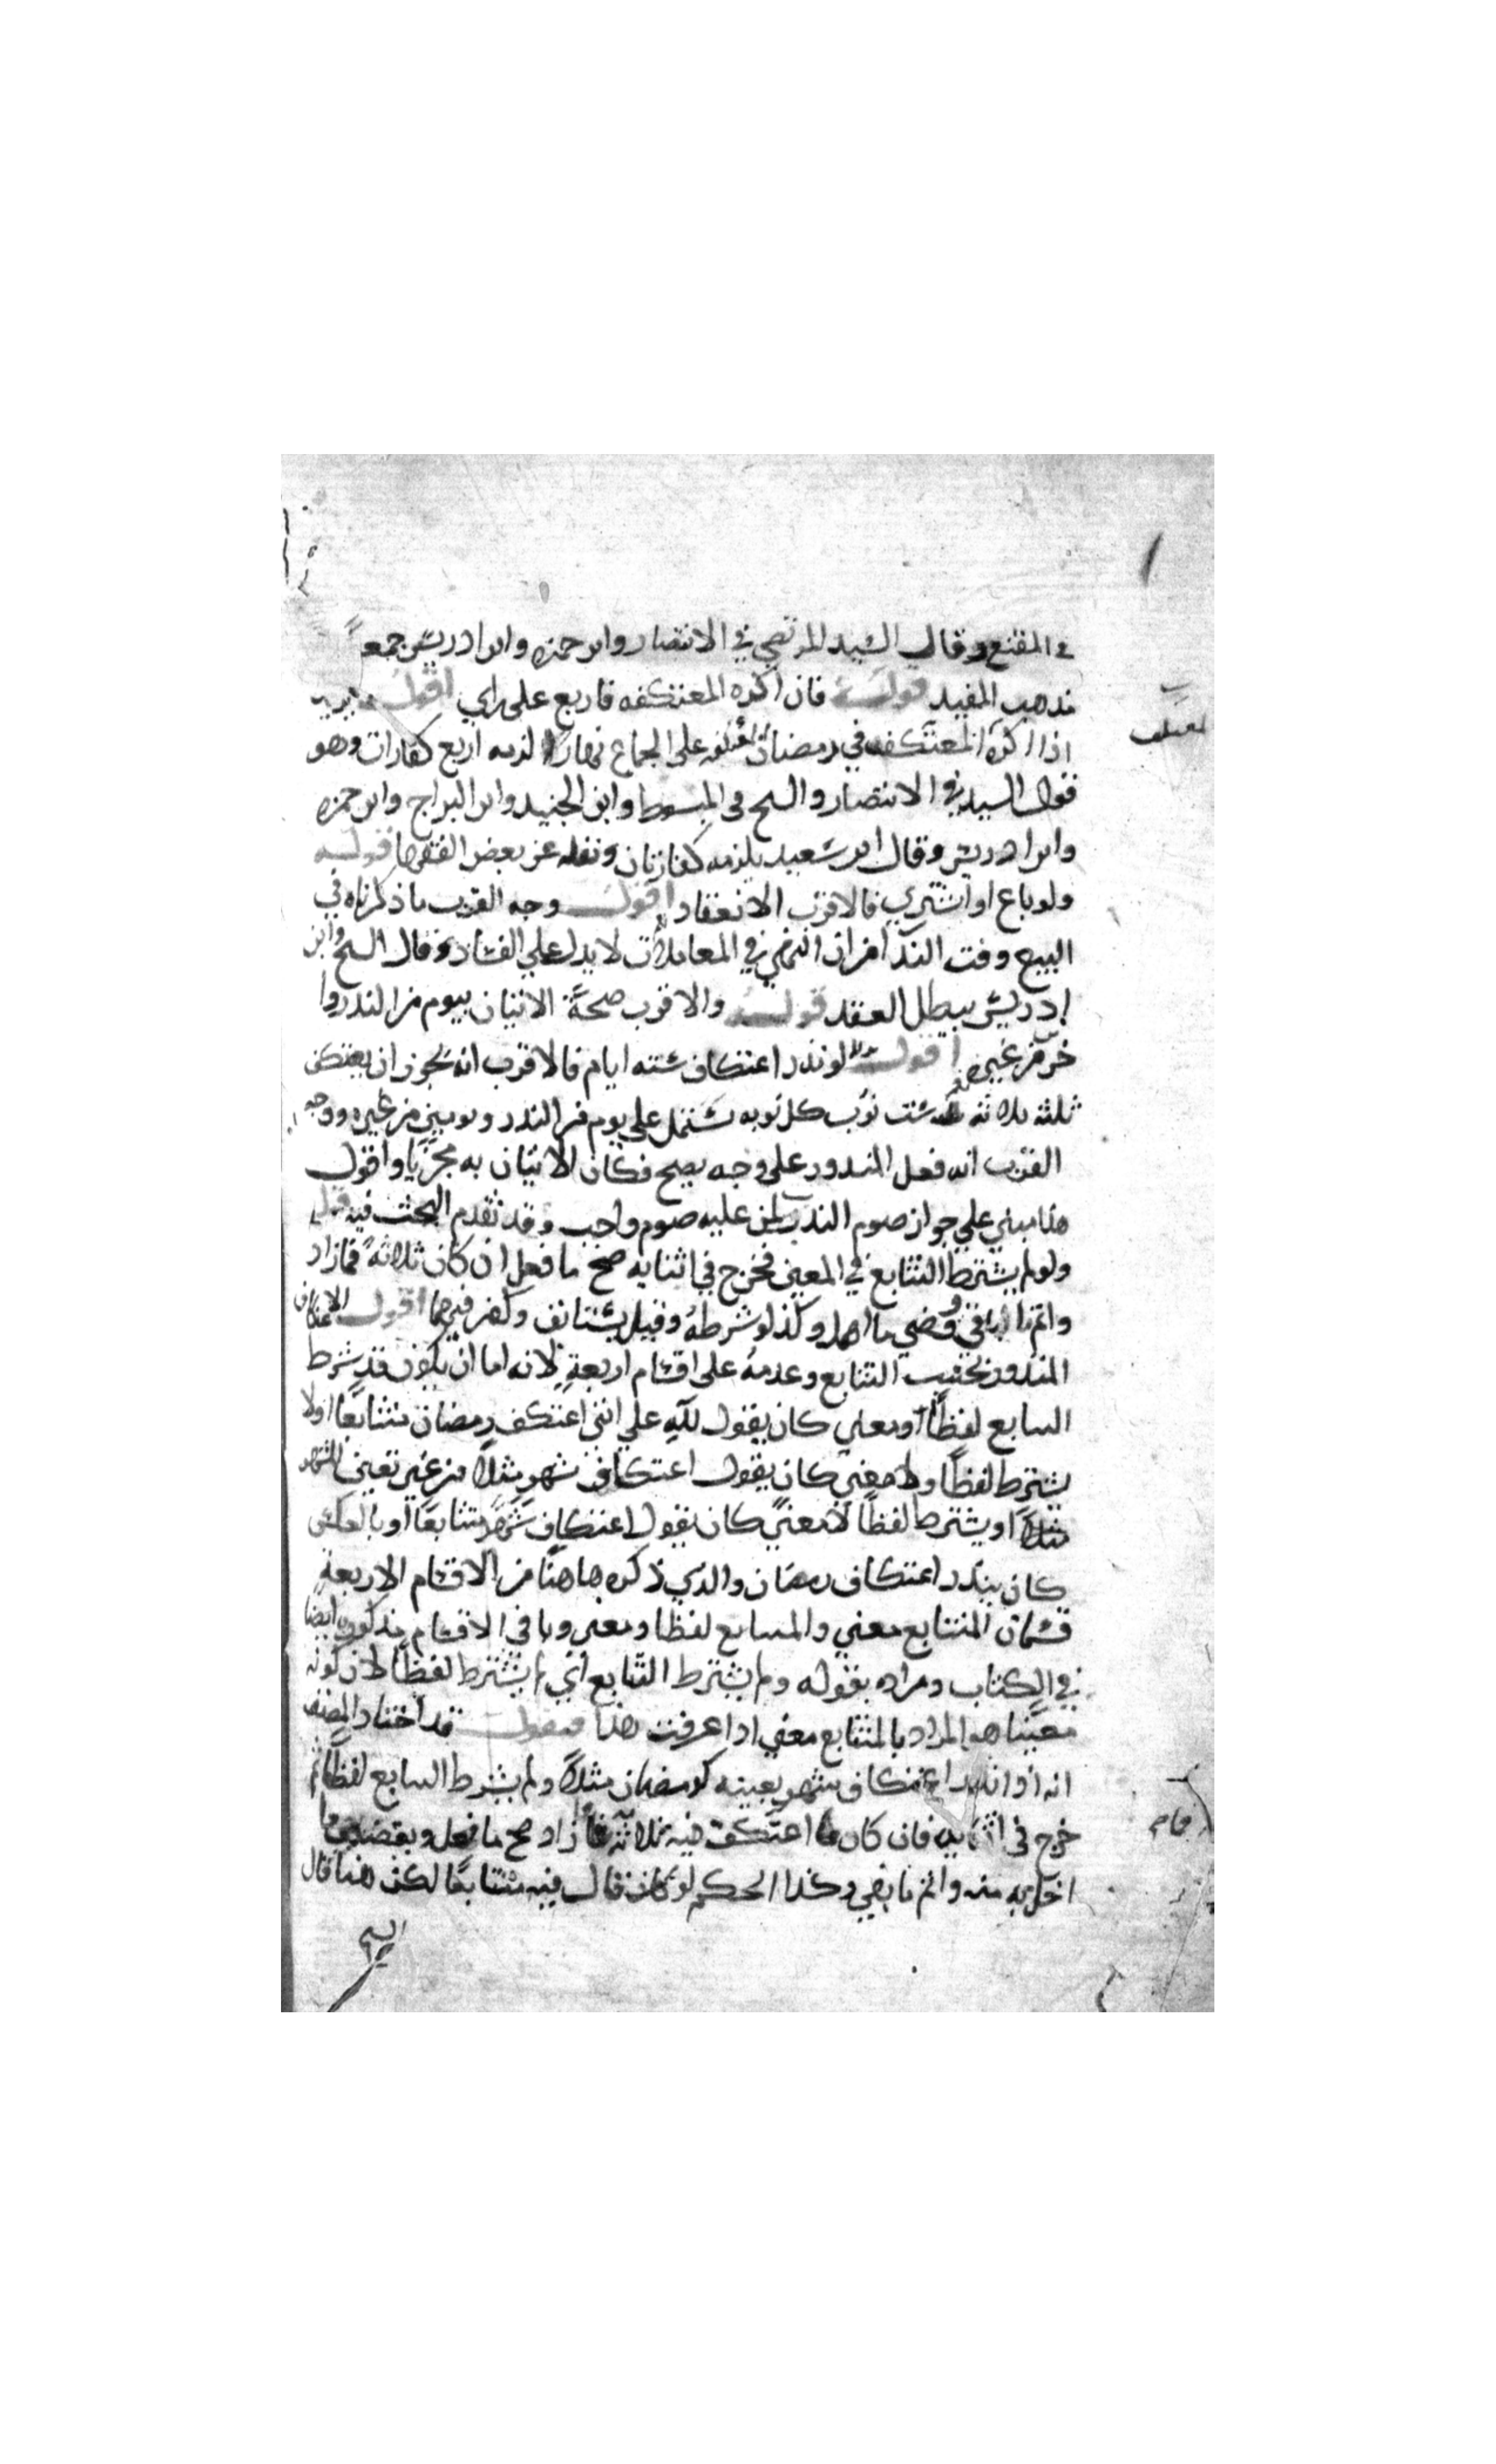 في المقنع وقال السيد المرتضي في الانتصار وابن حمزه وابن ادريس جمعاً
مذهب المفيد قوله فان اكره المعتكفه فاربع علي راي اقول يريد
اذا اكره المعتكف في رمضان المعتكفه على الجماع نهارا لزمه اربع كفارات وهو
قول السيد في الانتصار والشيخ في المبسوط وابن الجنيد وابن البراج وابن حمزه
وابن ادريس وقال ابن سعيد يلزمه كفارتان ونقله عن بعض الفقها قوله
ولو باع او اشتري فالاقرب الانعقاد اقول وجه القرب ما ذكرناه في
البيع وقت الندا من ان النهي في المعاملات لا يدل علي الفساد وقال الشيخ وابن
ادريس يبطل العقد قوله والاقرب صحة الاتيان بيوم من النذر وا
خر من غيره اقول لو نذر اعتكاف ستة ايام فالاقرب انه يجوز ان يعتكف
ثلثه ثلاثه ست نوب كل نوبه تشتمل على يوم من النذر ويومين من غيره ووجه
القرب انه فعل المنذور على وجه يصح فكان الاتيان به مجزيا واقول
هذا مبني علي جواز صوم الندب لمن عليه صوم واجب وقد تقدم البحث فيه قوله
ولو لم يشترط التتابع في المعين فخرج في اثنايه صح ما فعل ان كان ثلاثة فما زاد
واتم الباقي وقضي ما اهمل وكذا لو شرطه وقيل يستانف وكفر فيهما اقول الاعتكاف
المنذور بحسب التتابع وعدمه على اقسام اربعة لانه اما ان يكون قد شرط
التتابع لفظاً ومعني كان يقول لله علي انني اعتكف رمضان متتابعا او لا
يشترط لفظاً ولا معني كان يقول اعتكاف شهر مثلا من غير تعيين الشهر
مثلاً او يشترط لفظاً لا معنيً كان يقول اعتكاف شهر متتابعا او بالعكس
كان ينذر اعتكاف رمضان والذي ذكره هاهنا من الاقسام الاربعة
قسمان المتتابع معني والمتتابع لفظا ومعني وباقي الاقسام مذكوره ايضا
في الكتاب ومراده بقوله ولم يشترط التتابع اي لم يشترط لفظاً لان كونه
معينا هو المراد بالمتتابع معني اذا عرفت هذا فنقول قد اختار المصنف
انه اذا نذر اعتكاف شهر بعينه كرمضان مثلاً ولم يشترط التتابع لفظاً ثم
خرج في اثنايه فان كان ما اعتكف فيه ثلاثة فما زاد صح ما فعل ويقضي ما
اخل به منه واتم ما بقي وكذا الحكم لو كان قال فيه متتابعا لكن هنا قال
الشيخ